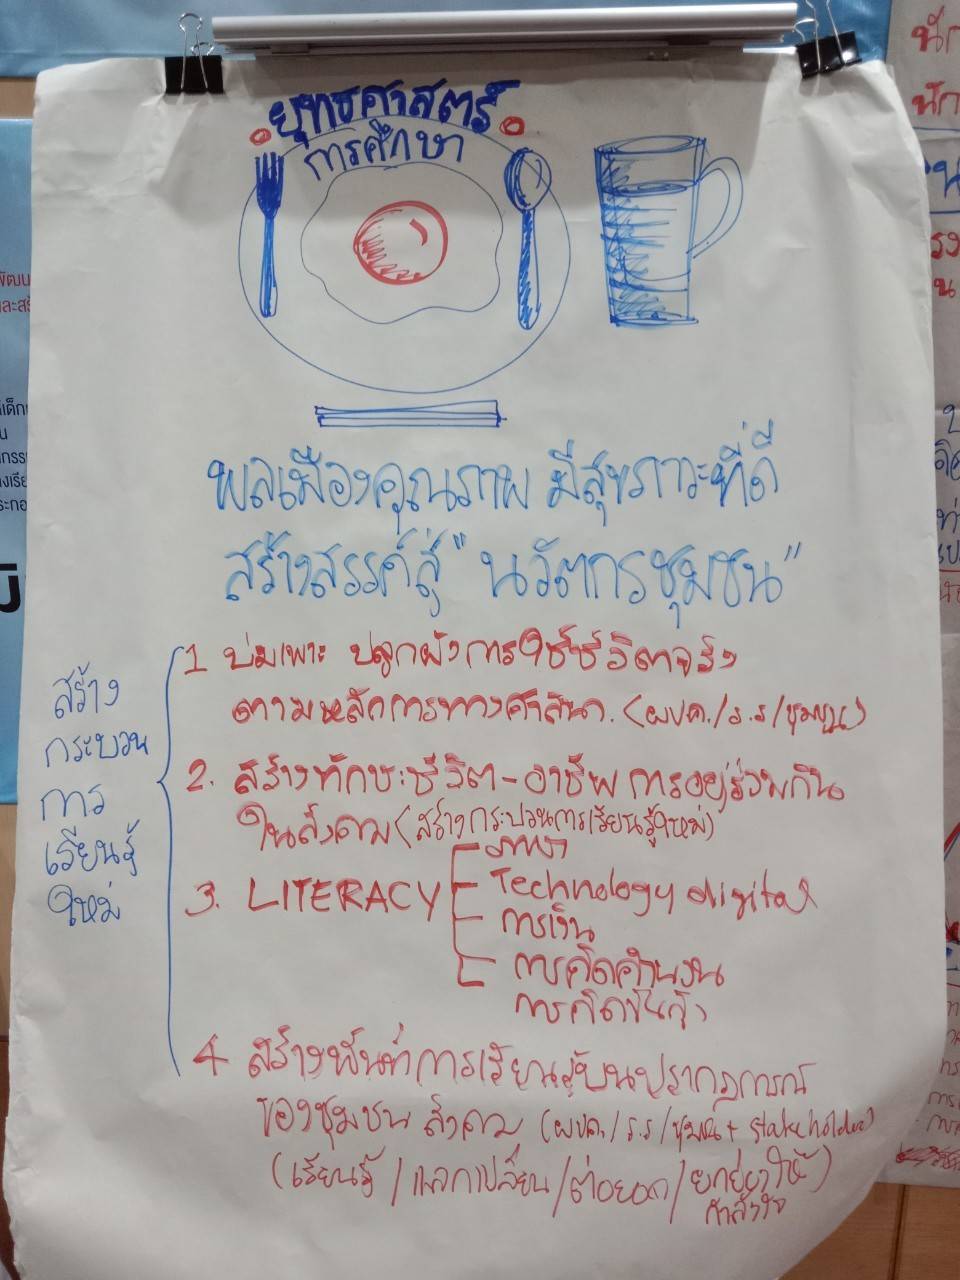 ยุทธศาสตร์
การศึกษา
พลเมืองคุณภาพ มีสุขภาวะที่ดี
สร้างสรรค์สู่ "นวัตกรชุมชน"
สร้าง
กระบวน
การ
เรียนรู้
ใหม่
1 บ่มเพาะ ปลูกฝังการใช้ชีวิตจริง
ตามหลักการทางศาสนา. (ผปค./ร.ร/ชุมชน)
2. สร้างทักษะชีวิต-อาชีพ การอยู่ร่วมกัน
ในสังคม (สร้างกระบวนการเรียนรู้ใหม่)
3. LITERACY
ภาษา
Technology digital
การเงิน
การคิดคำนวน
การคิดขั้นสูง
4 สร้างพื้นที่การเรียนรู้บนปรากฏการณ์
ของชุมชน สังคม (ผปค./ร.ร/ชุมชน + stakeholder)
(เรียนรู้ / แลกเปลี่ยน / ต่อยอด / ยกย่องให้)
กำลังใจ